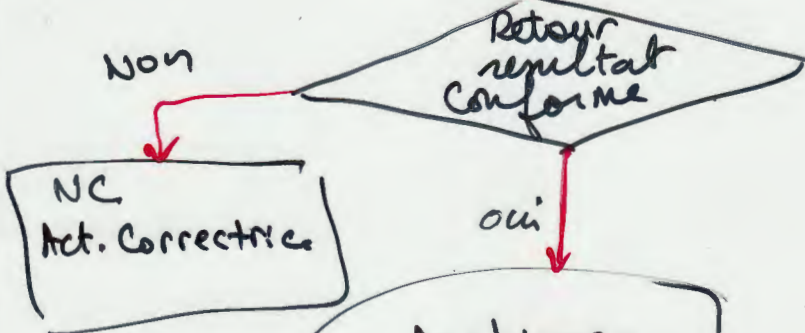 Non
Retour
resultat
Conforme
NC
Act. Correctrice
oui